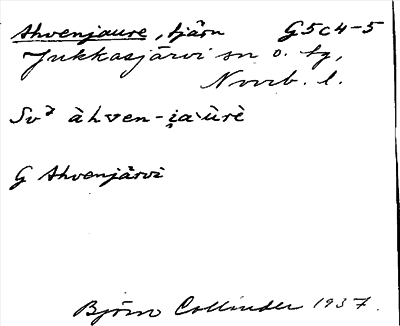 Ahvenjaure, tjärn G5c4-5
Jukkasjärvi sn o. tg,
Norrb. l.
Sv⁷ àhven-i̯a`ùrè
G Ahvenjärvi
Björn Collinder 1937.